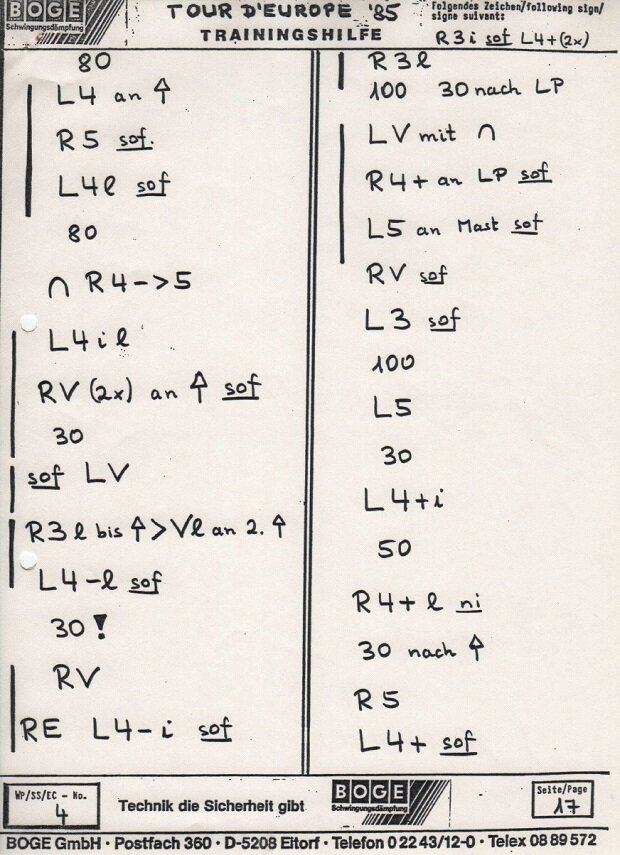 BOGE
Schwingungsdämpfung
TOUR D'EUROPE '85
TRAININGSHILFE
Folgendes Zeichen/following sign/
signe suivant:
R3i sof L4+(2x)
80
L4 an ↑
R5 sof.
L4l sof
80
∩ R4->5
L4il
RV (2x) an ↑ sof
30
sof LV
R3l bis ↑ > Vl an 2. ↑
L4-l sof
30!
RV
RE L4-i sof
R3l
100 30 nach LP
LV mit ∩
R4+ an LP sof
L5 an Mast sof
RV sof
L3 sof
100
L5
30
L4+i
50
R4+ l ni
30 nach ↑
R5
L4+ sof
WP/SS/EC - No.
4
Technik die Sicherheit gibt
BOGE
Schwingungsdämpfung
Seite/Page
17
BOGE GmbH · Postfach 360 · D-5208 Eitorf · Telefon 0 22 43/12-0 · Telex 08 89 572